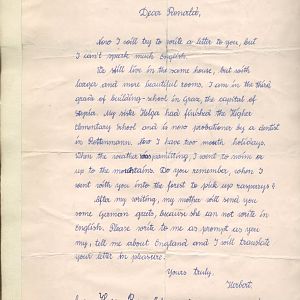 Dear Ronald,
Now I will try to write a letter to you, but
I can't speak much English.
We still live in the same house, but with
larger and more beautiful rooms. I am in the third
grade of building-school in Graz, the capital of
Styria. My sister Helga had finished the Higher
Elementary school and is now probationer by a dentist
in Rottenmann. Now I have two month holidays.
When the weather was permitting, I went to swim or
up to the mountains. Do you remember, when I
went with you into the forest to pick up rasperrys?
After my writing, my mother will send you
some German greets, because she can not write in
english. Please write to me as prompt as you
my, tell me about England and I will translate
your letter in pleasure.
Yours truly.
Herbert.